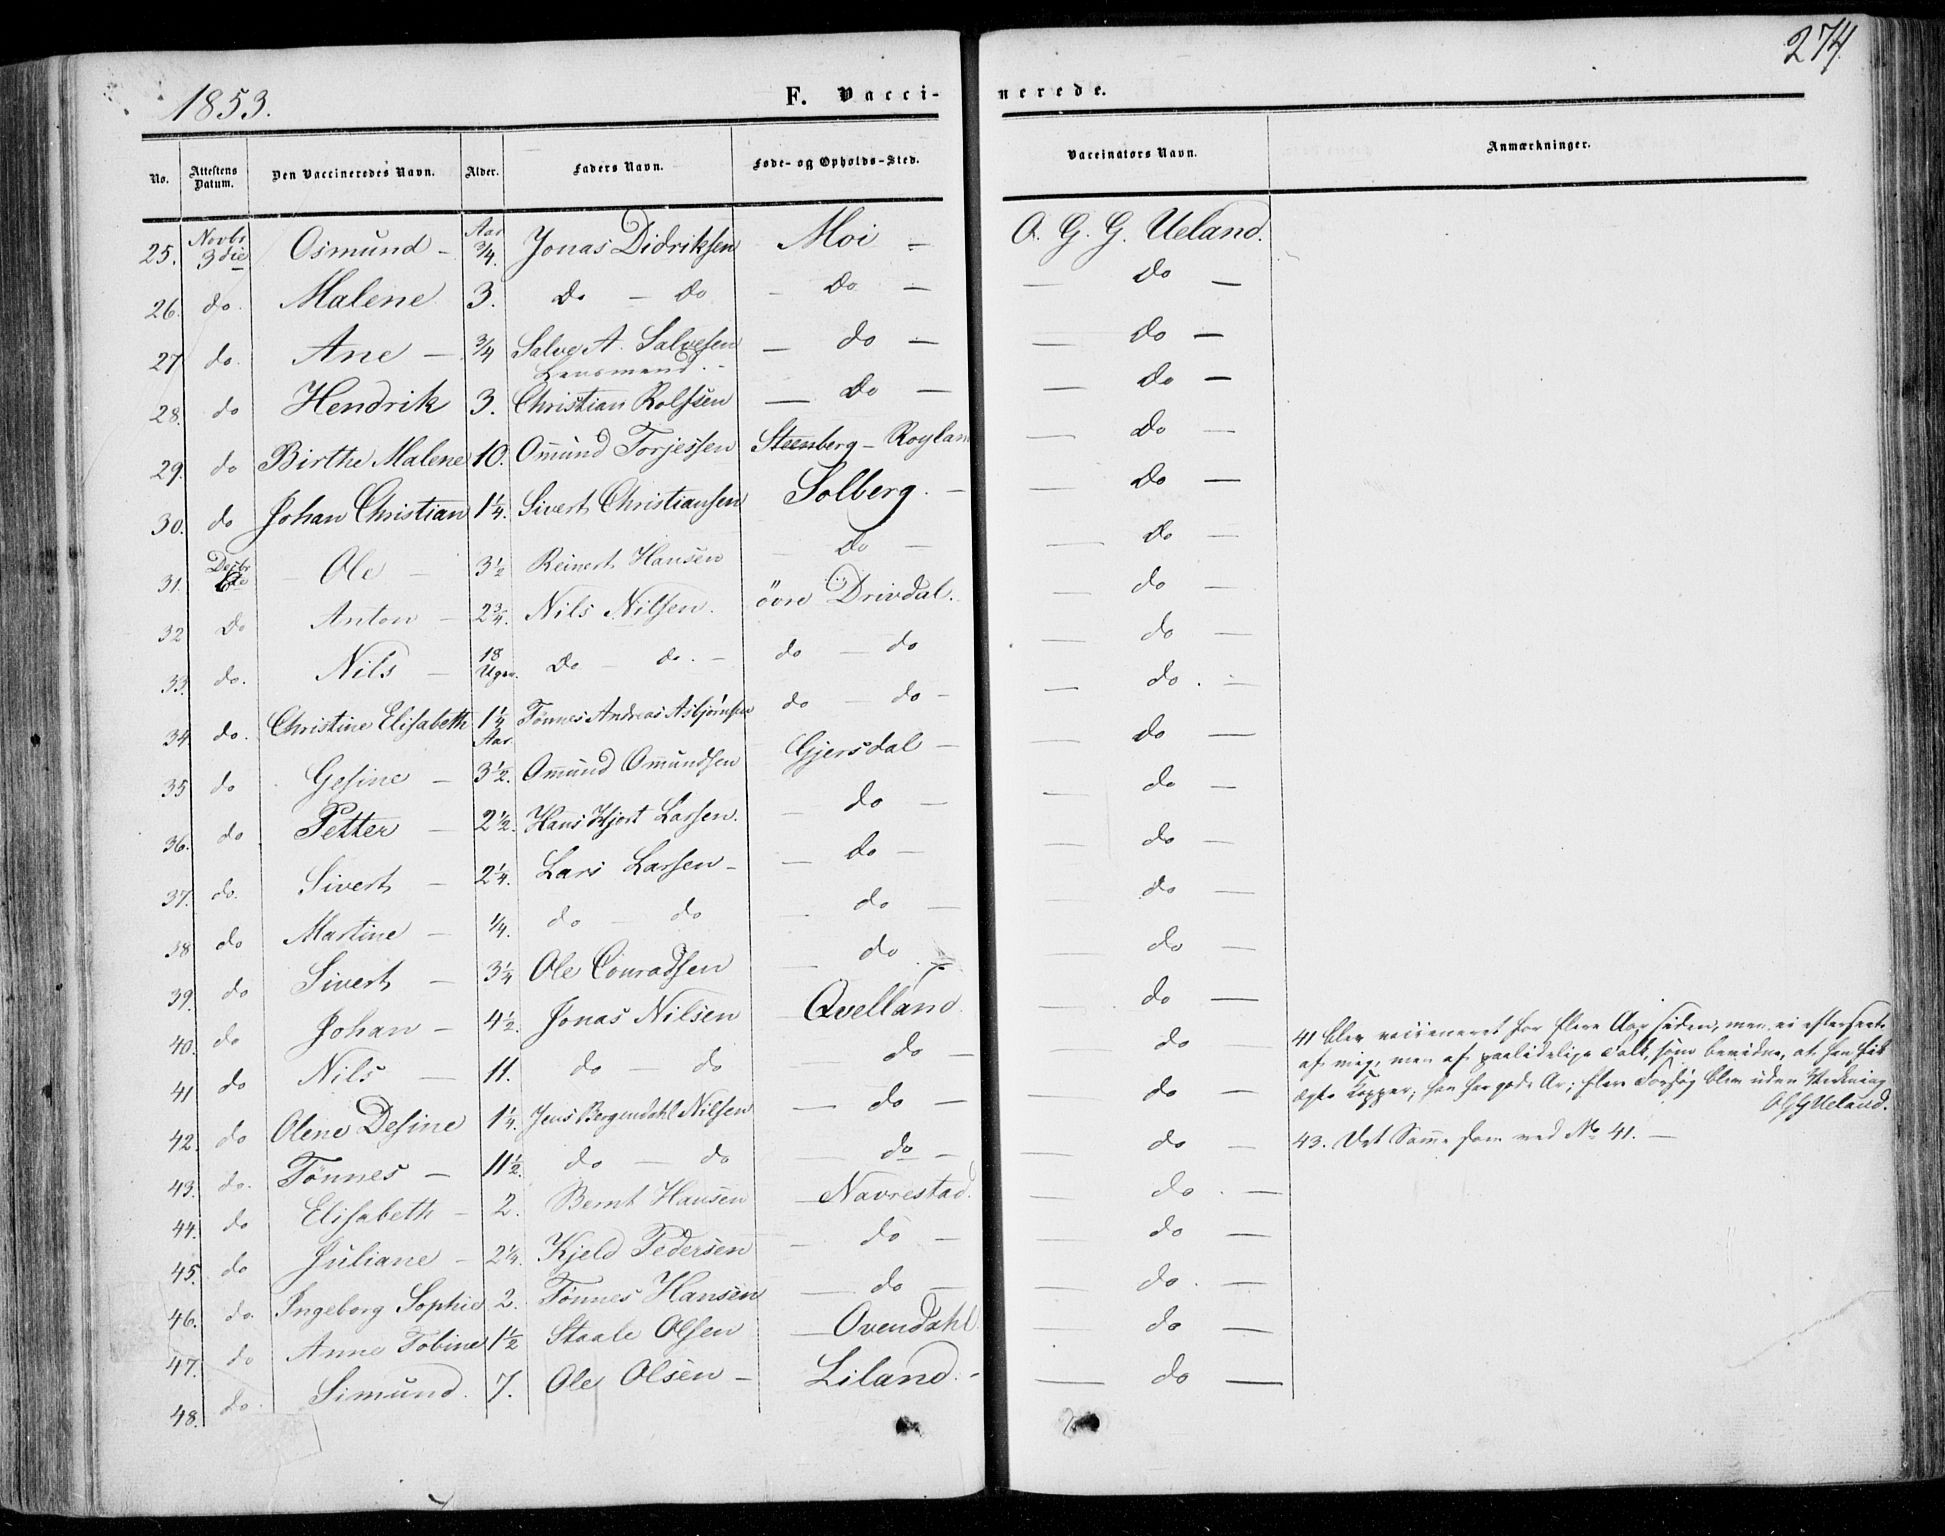 274.
1853.
F. Vacci- nerede.
No. Attestens Datum. Den Vaccineredes Navn. Alder. Faders Navn. Føde- og Opholds-Sted. Vaccinators Navn. Anmærkninger.
25. Novbr 3die Osmund - Aar 3/4. Jonas Didriksen Moi - O. G. G. Ueland.
26. do. Malene 3. Do - Do - Do - - Do -
27 do. Ane - 3/4 Salve A. Salvesen Lensmand. - - do - - Do -
28. do Hendrik 3. Christian Rolfsen - Do - - Do -
29. do Birthe Malene 10. Omund Torjessen Steenberg - Roylan - Do -
30. do Johan Christian 1 1/4. Sivert Christiansen Solberg. - - Do -
31. Decbr - Ole - 3 1/2 Reinert Hansen - Do - - Do -
32 Do Anton - 2 3/4. Nils Nilsen. övre Drivdal. - do -
33. do. Nils - 18 Uger. Do - do. - do - do - do -
34 do. Christine Elisabeth 1 1/4 Aar Tönnes Andreas Asbjörnsen do - do - - do. -
35 do Gesine - 3 1/2. Omund Omundsen Gjersdal - - do -
36. do Petter - 2 1/2. Hans Hjort Larsen. - do - - do -
37. do. Sivert - 2 1/4. Lars Larsen - - do - - do -
38 do Martine - 1/4. do - do - do - - do -
39. do Sivert - 3 1/4 Ole Conradsen - do - do -
40. do Johan - 4 1/2. Jonas Nilsen Qvelland. - do -
41 do Nils - 11. do - do - do - - do -
42. do Olene Desine 1 1/4. Jens Bergendahl Nilsen - do - - do -
43. do. Tönnes - 11 1/2. do - do - do - - do -
44. do Elisabeth - 2. Bernt Hansen - Navrestad. - do. -
45. do Juliane - 2 1/4. Kjeld Pedersen - do - - do -
46. do. Ingeborg Sophie 2. Tönnes Hansen - do - - do. -
47. do Anne Tobine 1 1/2 Staale Olsen - Ovendahl. - do -
48. do. Simund. 7. Ole Olsen - Liland. - - do -
41 blev vaccineret for flere Aar siden, men ei efterseet
af mig, men af paalidelige Folk, som bevidne, at han fik
ægte Kopper; han har gode Ar; flere Forsøg blev uden Virkning
OGGUeland.
43. Det Samme som ved No 41. -